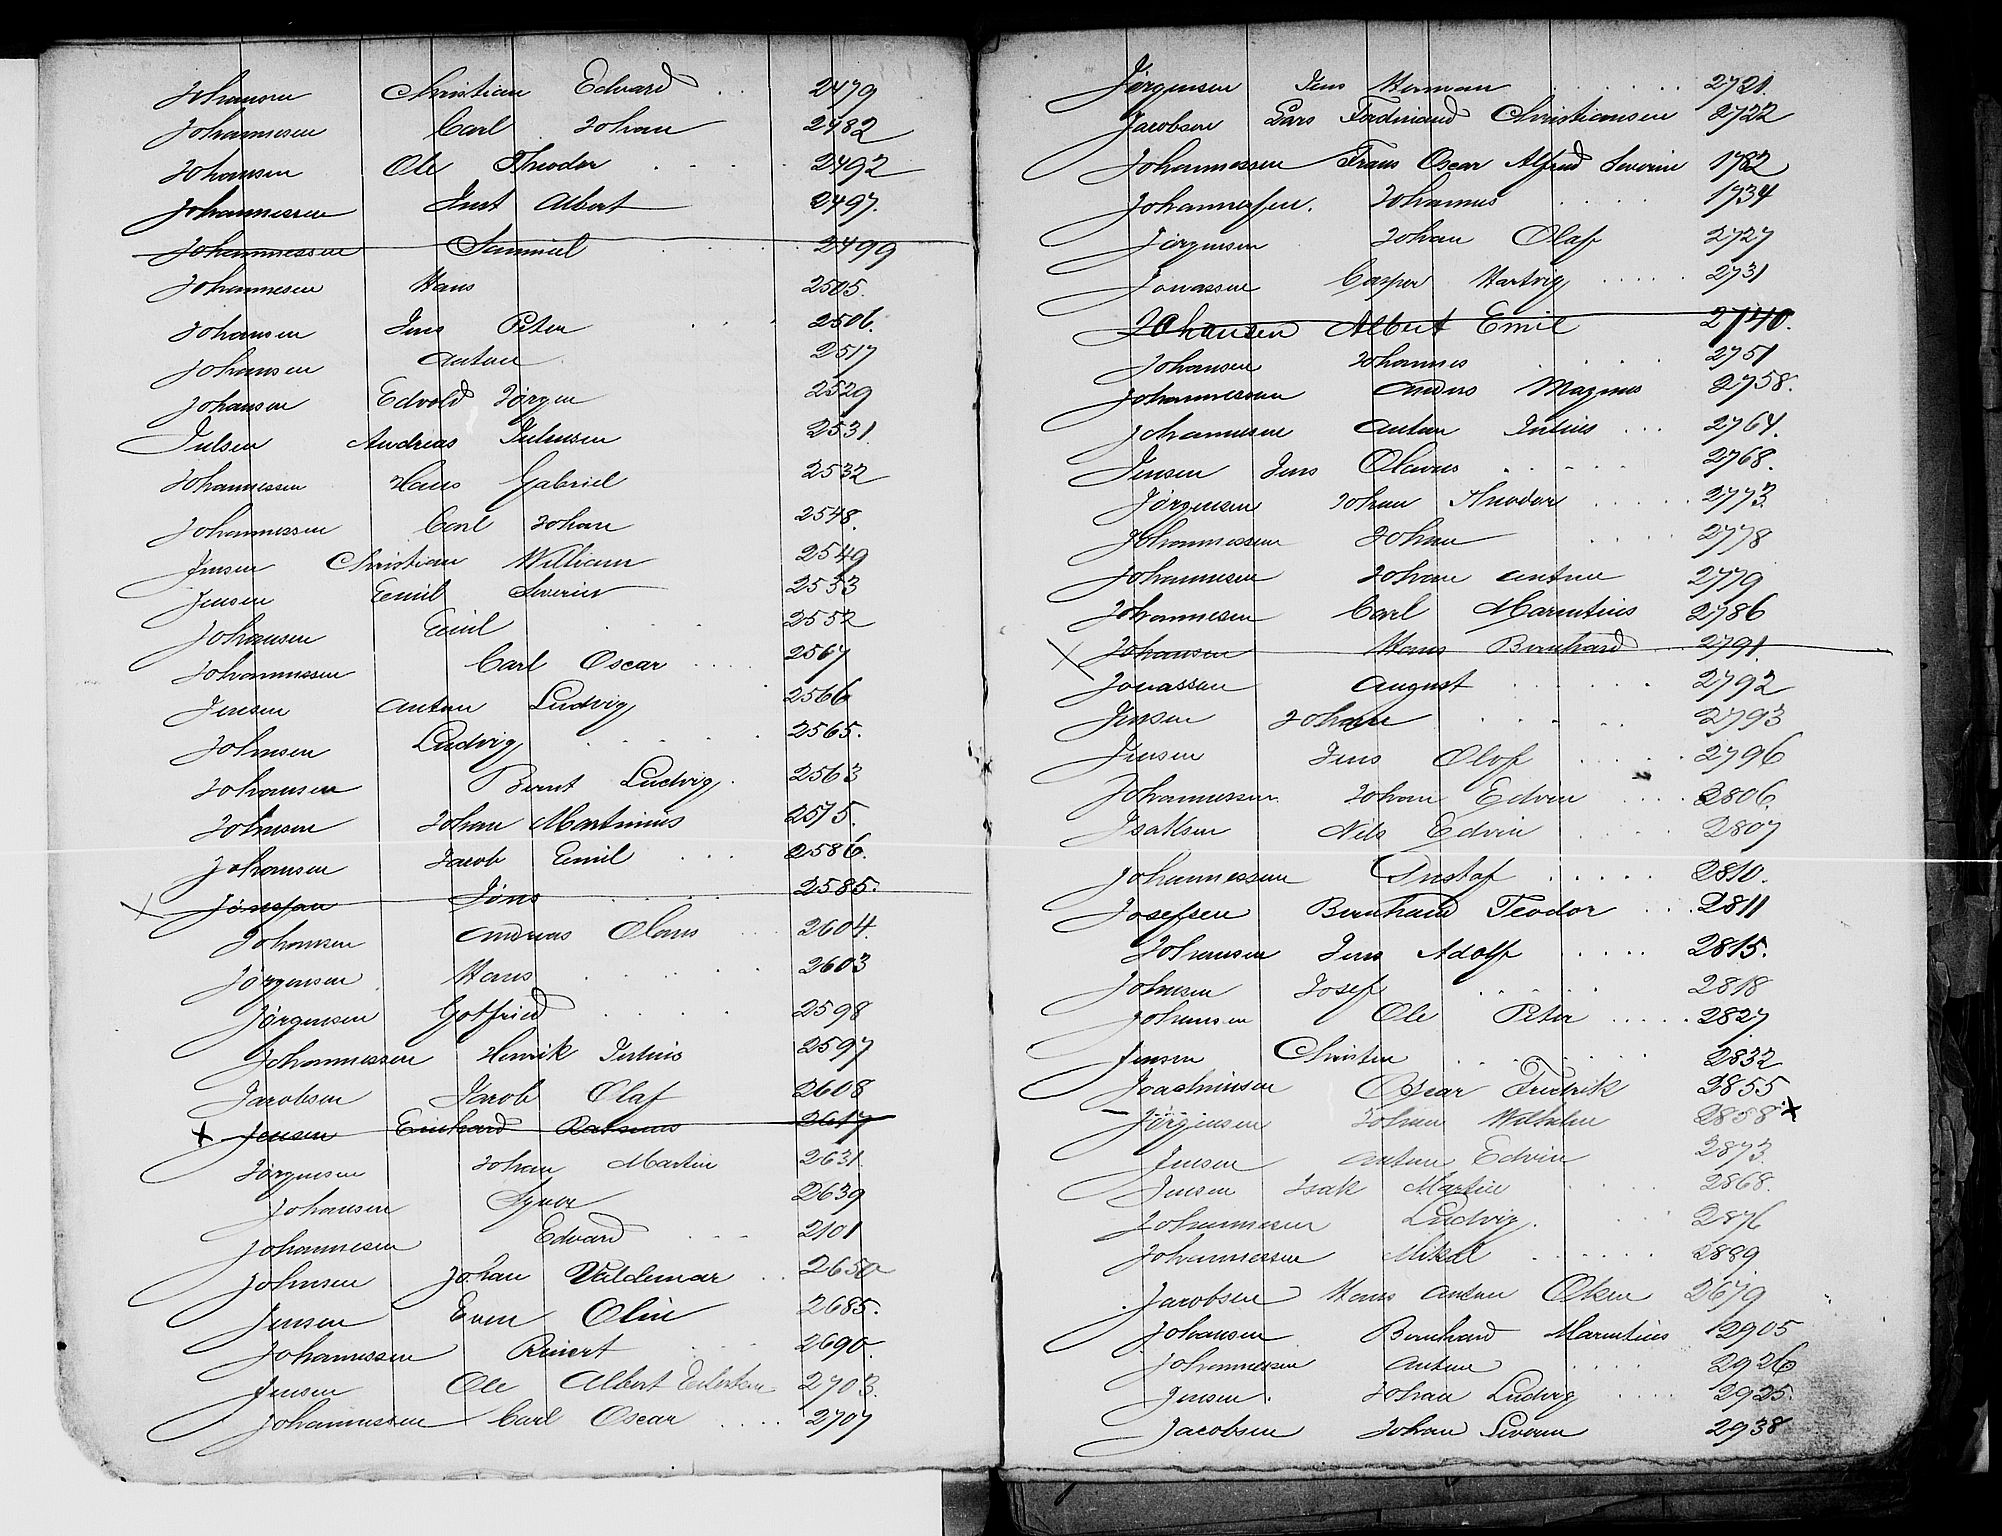 Johansen Christian Edvard . . 2479
Johannesen Carl Johan 2482
Johansen Ole Theodor . . . 2492
Johannessen Just Albert 2497.
Johannessen Samuel . . . 2499
Johannesen Hans 2505.
Johansen Jens Peter . . 2506.
Johansen Anton 2517
Johansen Edvold Jörgen 2529
Julsen Andreas Juliussen 2531
Johannessen Hans Gabriel 2532
Johannessen Carl Johan 2548.
Jensen Christian William 2549
Jensen Eemil Severin 2533
Johansen Emil . . . 2552
Johannessen Carl Oscar . . . . 2567
Jensen Anton Ludvig 2566
Johnsen Ludvig . . . . . 2565.
Johansen Bernt Ludvig . 2563
Johnsen Johan Martinius 2575.
Johansen Jacob Emil . . . 2586.
x Jönsson Jöns . . . . 2585.
Johansen Andreas Olaus . . 2604.
Jørgensen Hans . . . . . 2603
Jørgensen Gotfried . . . . 2598
Johannessen Henrik Julius 2597
Jacobsen Jacob Olaf 2608
x Jensen Einhard Rasmus 2617
Jørgensen Johan Martin 2631.
Johansen Synor 2639
Johannesen Edvard . . . 2101
Johnsen Johan Valdemar . . 2650
Jensen Even Olin 2685.
Johannessen Reinert . . . 2690.
Jensen Ole Albert 2703.
Johannessen Carl Oscar . . . . 2707
Jørgensen Jens Herman . . . . . . 2721.
Jacobsen Lars Ferdinand Christiansen 2722
Johannessen Frans Oscar Alfred Severin 1782
Johannessen. Johannes . . . . . 1734
Jørgensen Johan Olaf 2727
Jonassen Casper Hartvig . . . . . 2731
Johansen Albert Emil 2740.
Johansen Johannes . . . . 2751
Johannessen Anders Magnus 2758.
Johannesen Anton Julius . . . 2764.
Jensen Jens Olavus . . . . . 2768.
Jørgensen Johan Theodor . . . . . 2773.
Johannessen Johan . . . . 2778
Johannesen Johan Anton 2779
Johannesen Carl Marentius 2786
x Johansen Hans Bernhard . . . 2791.
Jonassen August . . . . . . 2792
Jensen Johan . . . . . 2793
Jensen Jens Olof . . . . . 2796
Johannessen Johan Edvin . . . . 2806.
Isaksen Nils Edvin . . . . 2807
Johannessen Gustaf . . . . . 2810.
Josefsen Bernhard Teodor . . . 2811
Johansen Jens Adolf . . . . . 2815.
Johnsen Josef . . . . . 2818
Johansen Ole Peter . . . . . 2827
Jensen Christen . . . . . . . 2832
Joachimsen Oscar Fredrik 2855
Jørgensen Johan Wilhelm 2858 x
Jensen Anton Edvin 2873.
Jensen Isak Martin . . . . 2868.
Johannessen Ludvig. . . . 2876
Johannessen Mikal . . . . . . 2889
Jacobsen Hans Anton Oken 2679
Johansen Bernhard Marentius 2905
Johannesen Anton . . . . 2926
Jensen. Johan Ludvig . . . . 2925.
Jacobsen Johan Severin 2938